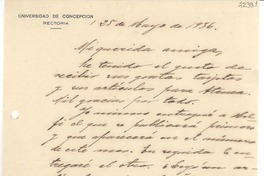 UNIVERSIDAD DE CONCEPCION
RECTORIA
25 de Mayo de 1936.
Mi querida amiga,
He tenido el gusto de
recibir sus gratas tarjetas
y sus artículos para Atenea.
Mil gracias por todo.
Yo mismo entregué a
el que se publicará primero
y que aparecerá en el número
de este mes. En seguida en-
tregaré el otro.